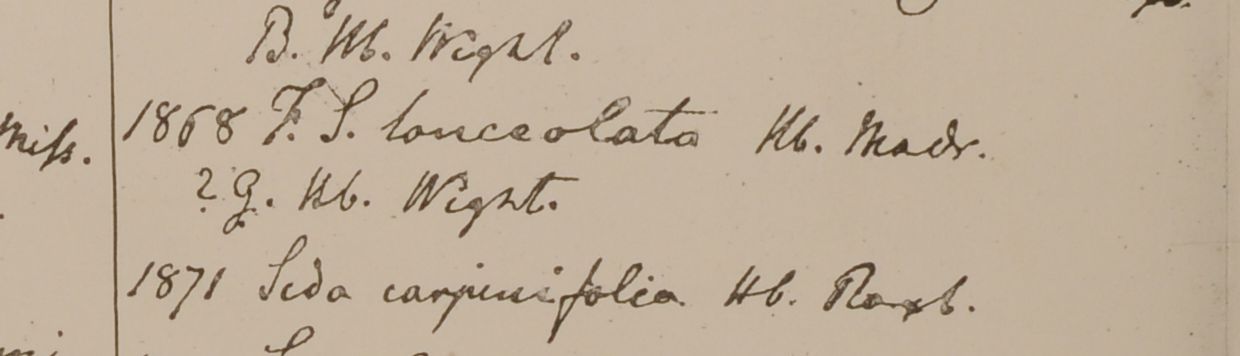 B. Hb. Wight.
Miss. 1868 F. S. lanceolata Hb. Madr.
? G. Hb. Wight.
1871 Sida carpinifolia Hb. Roxb.